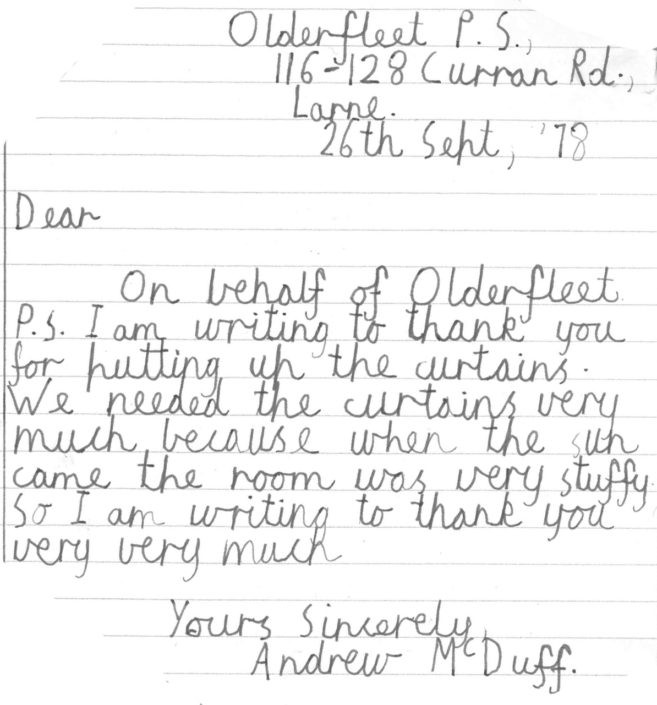 Olderfleet P.S.,
116-128 Curran Rd.,
Larne.
26th Sept, '78
Dear
On behalf of Olderfleet
P.S. I am writing to thank you
for putting up the curtains.
We needed the curtains very
much because when the sun
came the room was very stuffy.
So I am writing to thank you
very very much
Yours Sincerely,
Andrew McDuff.